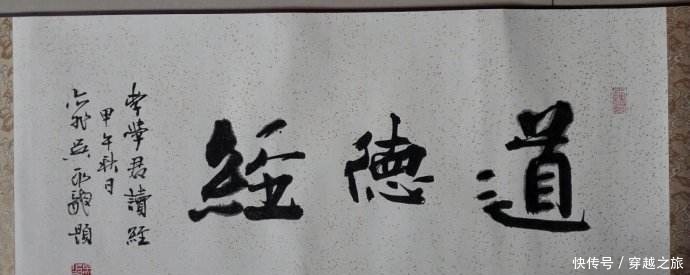 道德經
李學君讀經
甲午秋日
題
快传号/穿越之旅